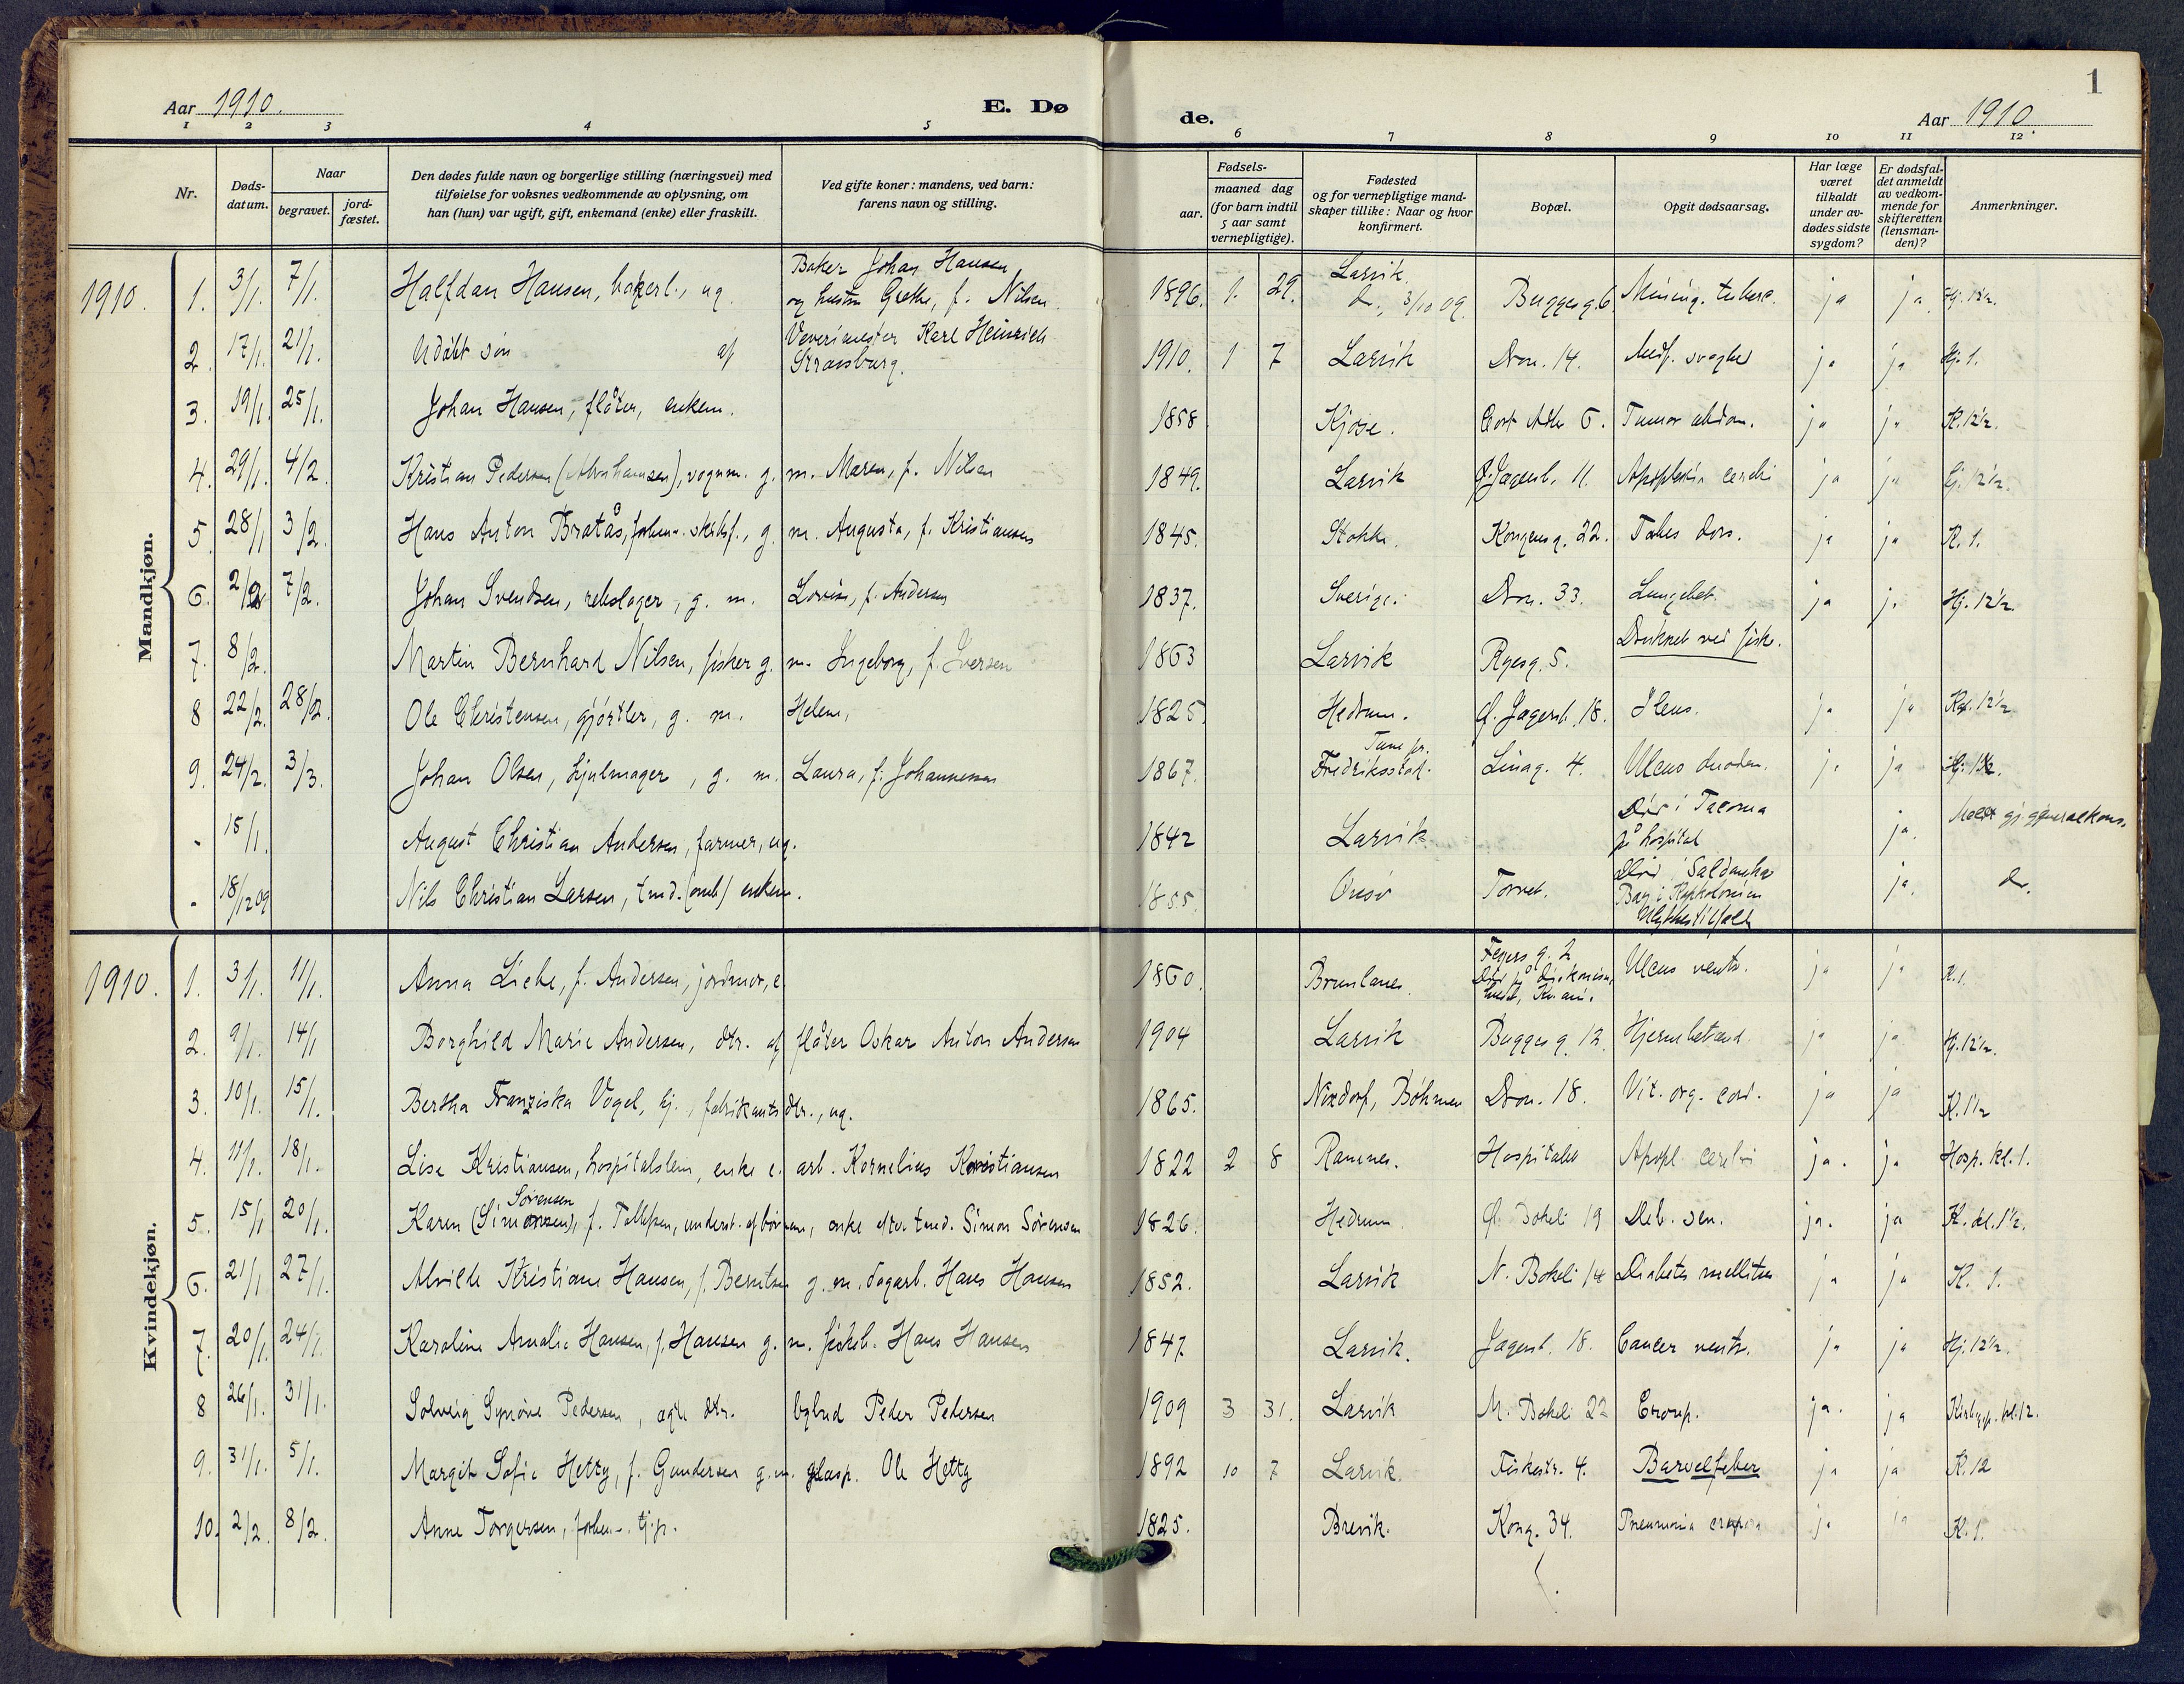 1
Aar 1910. E. Dø de. Aar 1910.
1 2 3 4 5 6 7 8 9 10 11 12
Nr. Døds-datum. Naar begravet. jord-fæstet. Den dødes fulde navn og borgerlige stilling (næringsvei) med tilføielse for voksnes vedkommende av oplysning, om han (hun) var ugift, gift, enkemand (enke) eller fraskilt. Ved gifte koner: mandens, ved barn: farens navn og stilling. Fødsels- aar. maaned dag (for barn indtil 5 aar samt vernepligtige). Fødested og for vernepligtige mandskaper tillike: Naar og hvor konfirmert. Bopæl. Opgit dødsaarsag. Har læge været tilkaldt under avdødes sidste sygdom? Er dødsfaldet anmeldt av vedkommende for skifteretten (lensmanden)? Anmerkninger.
Mandkjøn.
1910. 1. 3/1. 7/1. Halfdan Hansen, bakerl., ug. Baker Johan Hansen og hustru Grethe, f. Nilsen 1896. 1. 29. Larvik do, 3/10 09. Bugges g. 6. Mening. tuberc. ja ja.
2. 17/1. 21/1. Udøbt søn af Væverimester Karl Heinrich Strausburg. 1910. 1 7 Larvik Dron. 14. Medf. svaghed ja ja Hj. 1.
3. 19/1. 25/1. Johan Hansen, flåter, enkem. 1858 Kjose. Cort Adler 6. Tumor abdom. ja ja K. 12½.
4. 29/1. 4/2. Kristian Pedersen (Abrahamsen), vognm. g. m. Maren, f. Nilsen 1849. Larvik Ø. Jagersb. 11. Apoplexia cerebri ja ja 12½.
5. 28/1 3/2. Hans Anton Bratås, forhenv. skibsf., g. m. Augusta, f. Kristiansen 1845. Stokke. Kongensg. 22. Tabes dors. ja ja K. 1.
6. 2/2 7/2. Johan Svendsen, rebslager, g. m. Lovise, f. Andersen 1837. Sverige. Dron. 33. Lungebet. ja ja Hj. 12½.
7. 8/2. Martin Bernhard Nilsen, fisker g. m. Ingeborg, f. Iversen 1863 Larvik Ryesg. 5. Druknet ved fiske.
8 22/2. 28/2. Ole Christensen, gjørtler, g. m. Helene, 1825 Hedrum. Ø. Jagersb. 18. Ileus. ja ja 12½
9. 24/2. 3/3. Johan Olsen, hjulmager, g. m. Laura, f. Johannessen 1867. Tune pr. Fredriksstad. Linag. 4. Ulcus duoden. ja ja
- 15/1. August Christian Andersen, farmer, ug. 1842 Larvik Død i Tacoma på hospital ja. Meldt gj. generalkons.
- 18/12 09 Nils Christian Larsen, tmd. (omb) enkem. 1855. Onsø Torvet. Død i Saldanha Bay i Kapkolonien Ulykkestilfælde ja. do.
Kvindekjøn.
1910. 1. 3/1. 11/1. Anna Liche, f. Andersen, jordmor, e. 1860. Brunlanes. Fegersg. 2 Død på Diakonisse Ulcus ventr. ja ja K. 1.
2. 9/1. 14/1 Borghild Marie Andersen, dtr. af flåter Oskar Anton Andersen 1904 Larvik Bugges g. 12 Hjernebetænd. ja ja Hj. 12½.
3. 10/1. 15/1. Bertha Franziska Vogel, hj., fabrikantsdtr., ug. 1865. Nixdorf, Böhmen Dron. 18. Vit. org. cord. ja ja K. 1½
4. 11/1. 18/1. Lise Kristiansen, hospitalslem, enke e. arb. Kornelius Kristiansen 1822 2 8 Ramnes. Hospitalet Apopl. cerebri ja. ja Hosp. kl. 1.
5. 15/1 20/1. Karen (Simonsen) Sørensen, f. Tollefsen, underst. af børnene, enke efter tmd. Simon Sørensen 1826. Hedrum. Ø. Bøkeli 19 Deb. sen. ja. ja K. kl. 1½.
6. 21/1 27/1. Alvilde Kristiane Hansen, f. Berntsen g. m. dagarb. Hans Hansen 1852. Larvik N. Bøkeli 14 Diabetes mellitus ja ja K. 1.
7. 20/1. 24/1. Karoline Amalie Hansen, f. Hansen g. m. Hans Hansen 1847. Larvik. Jagersb. 18. Cancer ventr. ja ja Hj. 12½.
8 26/1. 31/1. Solveig Synøve Pedersen, ægte dtr. bybud Peder Pedersen 1909 3 31. Larvik M. Bøkeli 22 Croup. ja. ja kl. 12.
9. 31/1. 5/1. Margit Sofie Hetty, f. Gundersen g. m. glasp. Ole Hetty 1892 10 7 Larvik. Fiskestr. 4. Barselfeber ja ja K. 12
10. 2/2. 8/2. Anne Torgersen, forhenv. tj.p. 1825. Brevik. Kong. 34. Pneumonia ja ja K. 1.